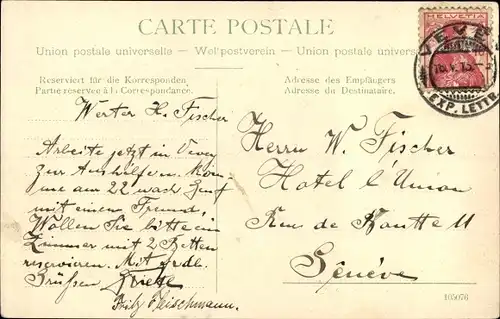 CARTE POSTALE
Union postale universelle — Weltpostverein — Union postale univers
Reserviert für die Korresponden
Partie réservée à la Correspondance.
Adresse des Empfängers
Adresse du Destinataire.
HELVETIA
VEVEY
EXP. LETTR.
Werter H. Fischer
Arbeite jetzt in Vevey
zur Aushilfe. Kom
me am 22 nach Genf
mit einem Freund,
Wollen Sie bitte ein
Zimmer mit 2 Betten
reservieren. Mit frdl.
Grüssen
Fritz Fleischmann.
Herrn W. Fischer
Hotel l'Union
Rue de 11
Genève
105076